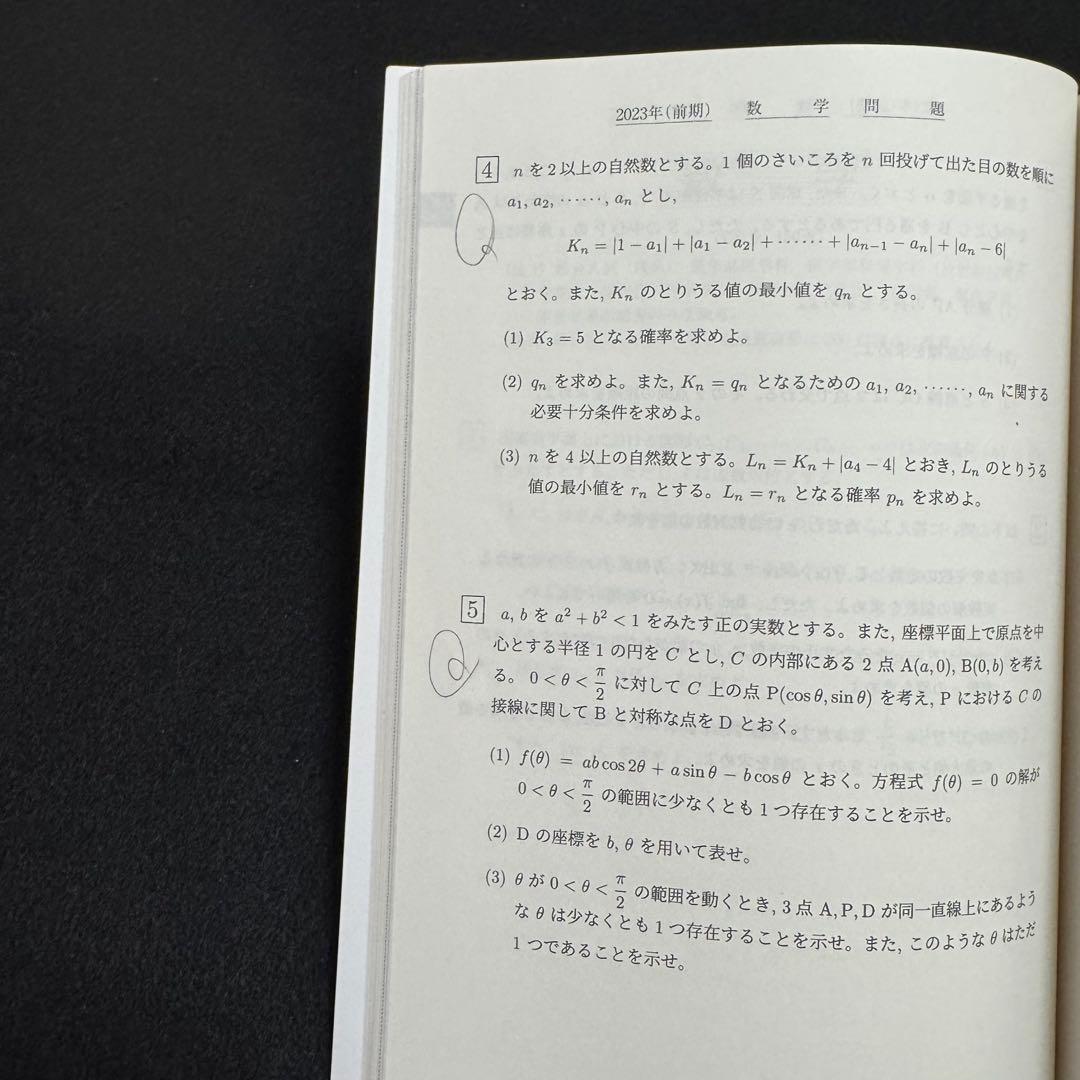 2023年(前期) 数 学 問 題
4 n を2以上の自然数とする。1個のさいころを n 回投げて出た目の数を順に
a₁, a₂, ……, aₙ とし,
Kₙ = |1 − a₁| + |a₁ − a₂| + …… + |aₙ₋₁ − aₙ| + |aₙ − 6|
とおく。また, Kₙ のとりうる値の最小値を qₙ とする。
(1) K₃ = 5 となる確率を求めよ。
(2) qₙ を求めよ。また, Kₙ = qₙ となるための a₁, a₂, ……, aₙ に関する
必要十分条件を求めよ。
(3) n を4以上の自然数とする。Lₙ = Kₙ + |a₄ − 4| とおき, Lₙ のとりうる
値の最小値を rₙ とする。Lₙ = rₙ となる確率 pₙ を求めよ。
5 a, b を a² + b² < 1 をみたす正の実数とする。また, 座標平面上で原点を中
心とする半径1の円を C とし, C の内部にある2点 A(a, 0), B(0, b) を考え
る。0 < θ < π/2 に対して C 上の点 P(cos θ, sin θ) を考え, P における C の
接線に関して B と対称な点を D とおく。
(1) f(θ) = ab cos 2θ + a sin θ − b cos θ とおく。方程式 f(θ) = 0 の解が
0 < θ < π/2 の範囲に少なくとも1つ存在することを示せ。
(2) D の座標を b, θ を用いて表せ。
(3) θ が 0 < θ < π/2 の範囲を動くとき, 3点 A, P, D が同一直線上にあるよう
な θ は少なくとも1つ存在することを示せ。また, このような θ はただ
1つであることを示せ。